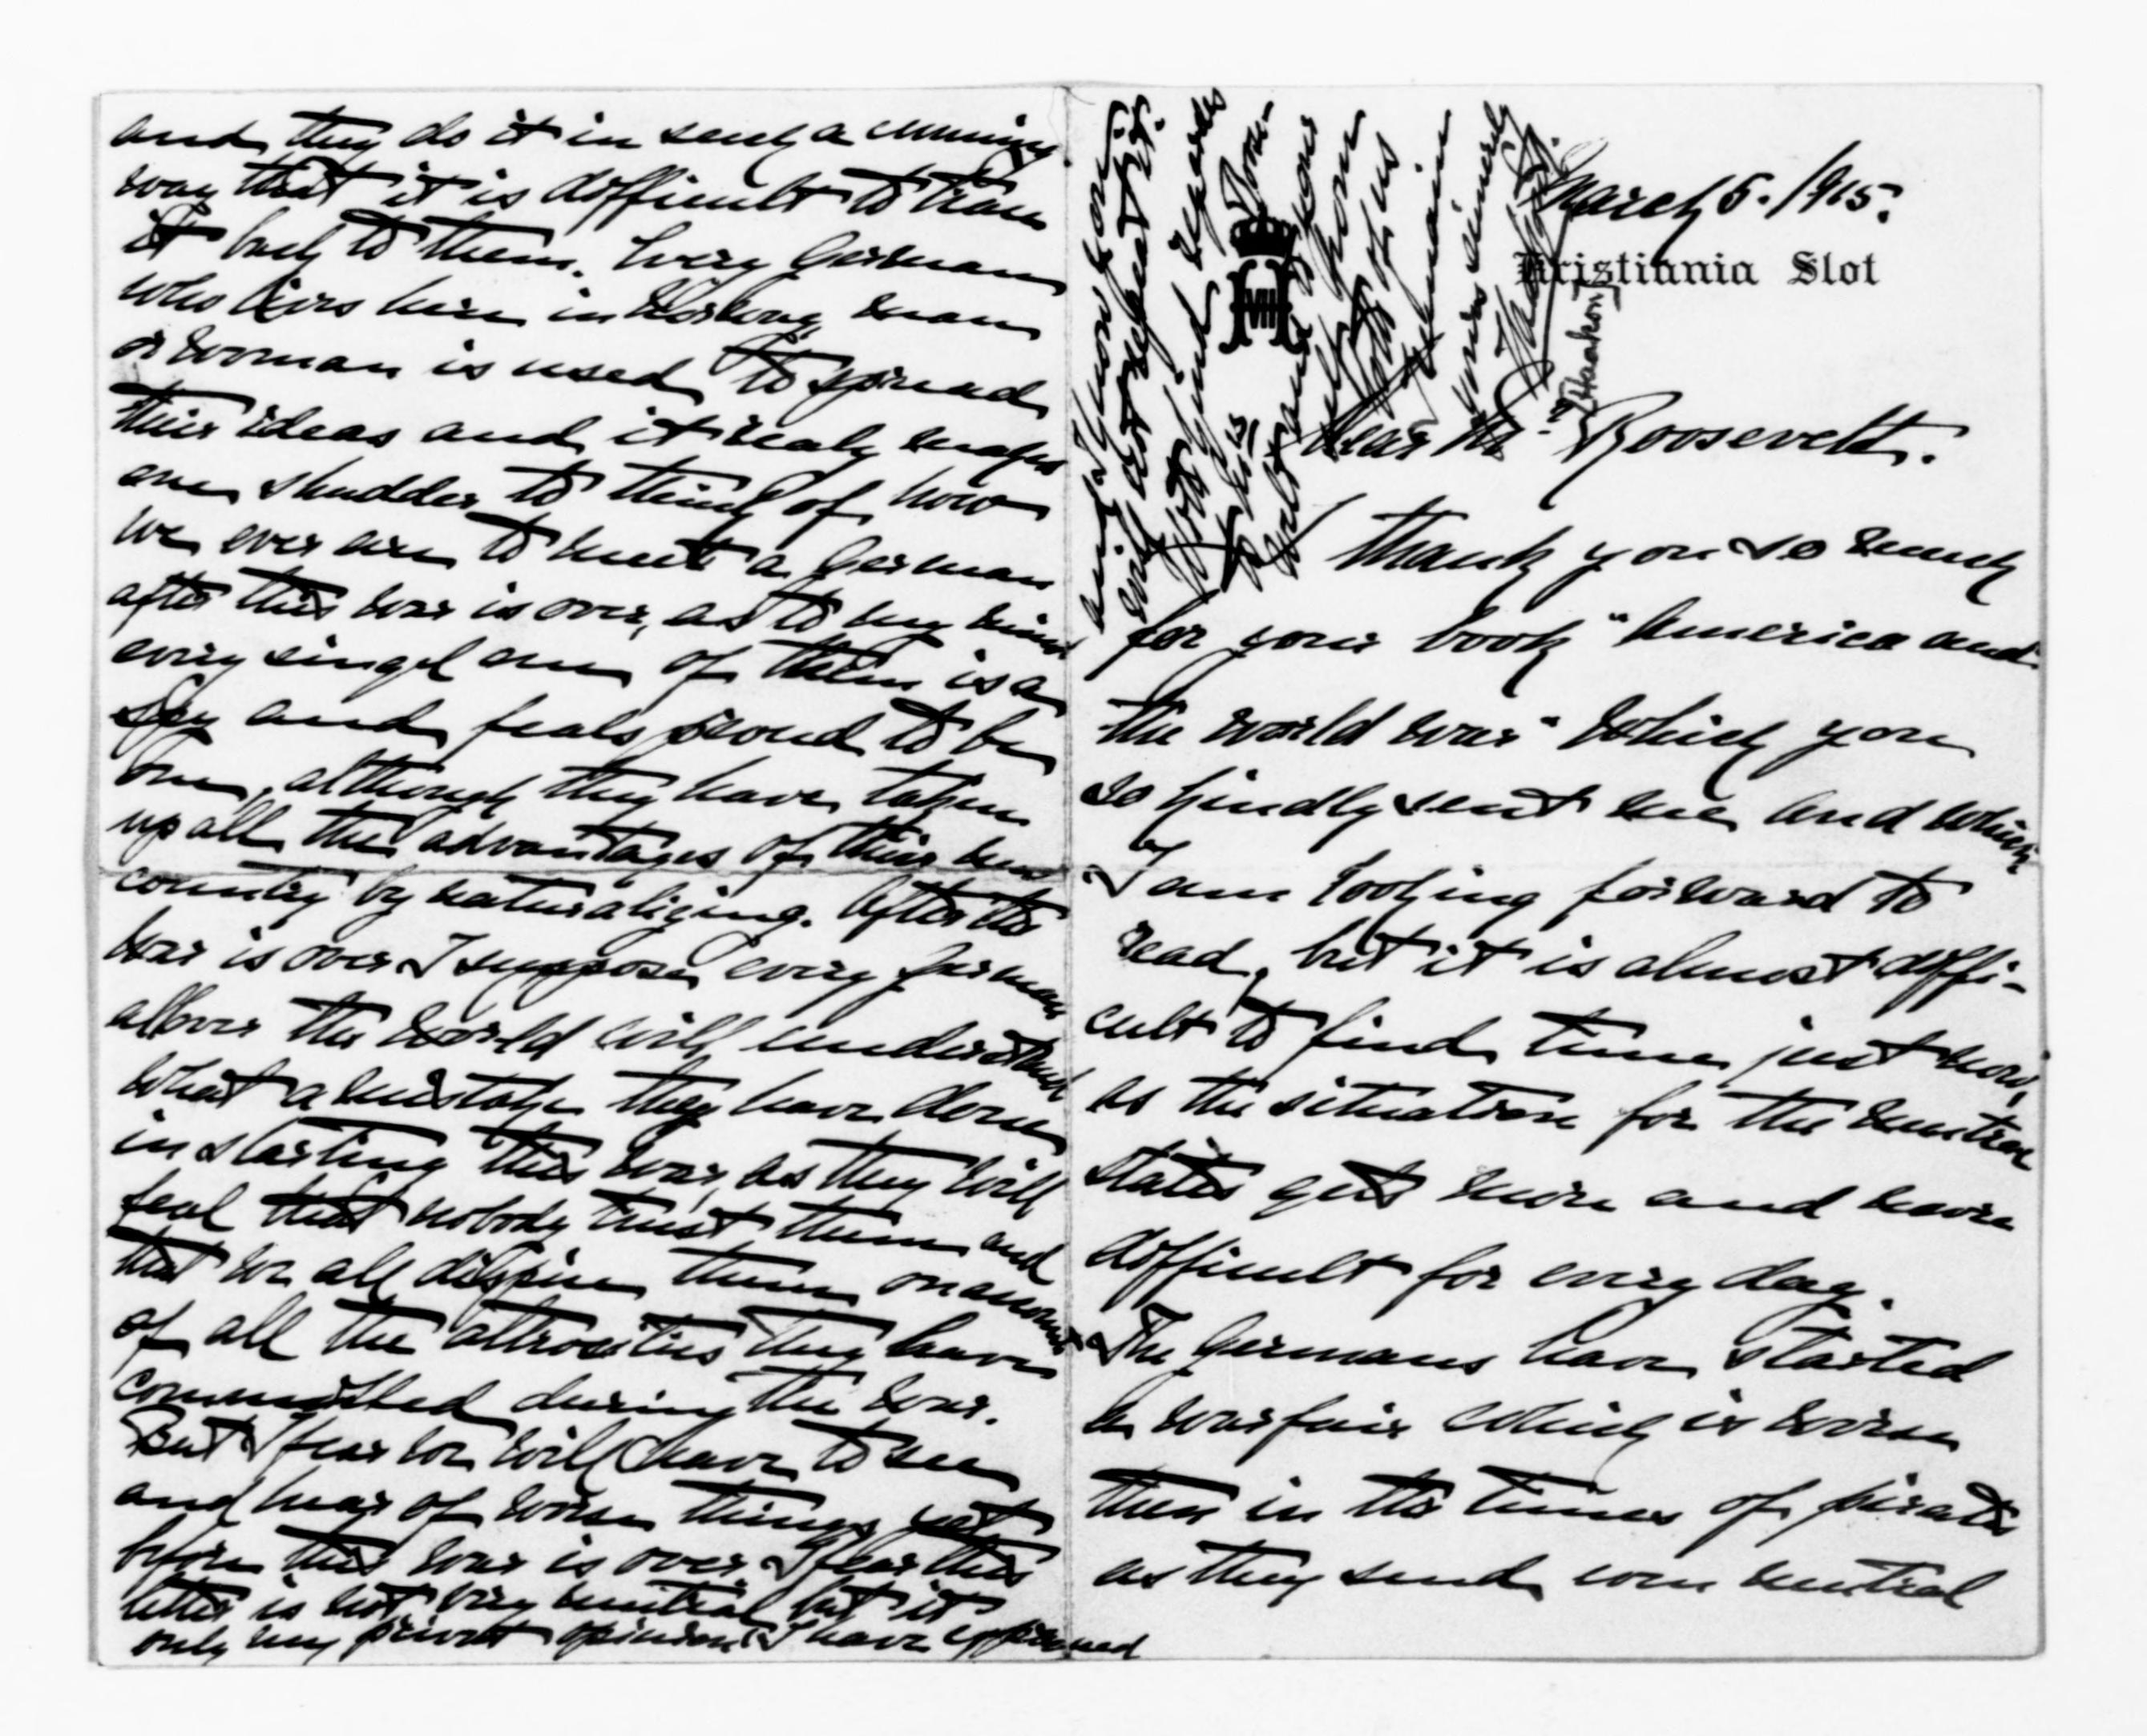 March 5. 1915.
Kristiania Slot
HVII
Dear Mr. Roosevelt.
[Haakon]
I thank you so much
for your book "America and
the world war" which you
so kindly sent me and which
I am looking forward to
read, but it is almost diffi-
cult to find time just now,
as the situation for the neutral
states gets more and more
difficult for every day.
The Germans have started
a warfair which is worse
then in the times of pirates
as they send even neutral
and they do it in such a cunning
way that it is difficult to trace
it back to them. Every German
who lives here in Norway man
or woman is used to spread
their ideas and it realy makes
one shudder to think of how
we ever are to meet a German
after this war is over, as to my mind
every singel one of them is a
spy and feals proud to be
one, although they have taken
up all the advantages of their new
country by naturalizing. After the
war is over I suppose every german
allover the world will understand
what a mistake they have done
in starting this war, as they will
feal that nobody trust them and
that we all dispise them on account
of all the attrocities they have
committed during the war.
But I fear we will have to see
and hear of worse things yet
before this war is over I fear this
letter is not very neutral but it is
only my privat opinion I have expressed
and I know you
will not repeat it.
With kind regards
to Mrs Roose-
velt and yours
self from
both of us
I remain
yours sincerely
Haakon R.